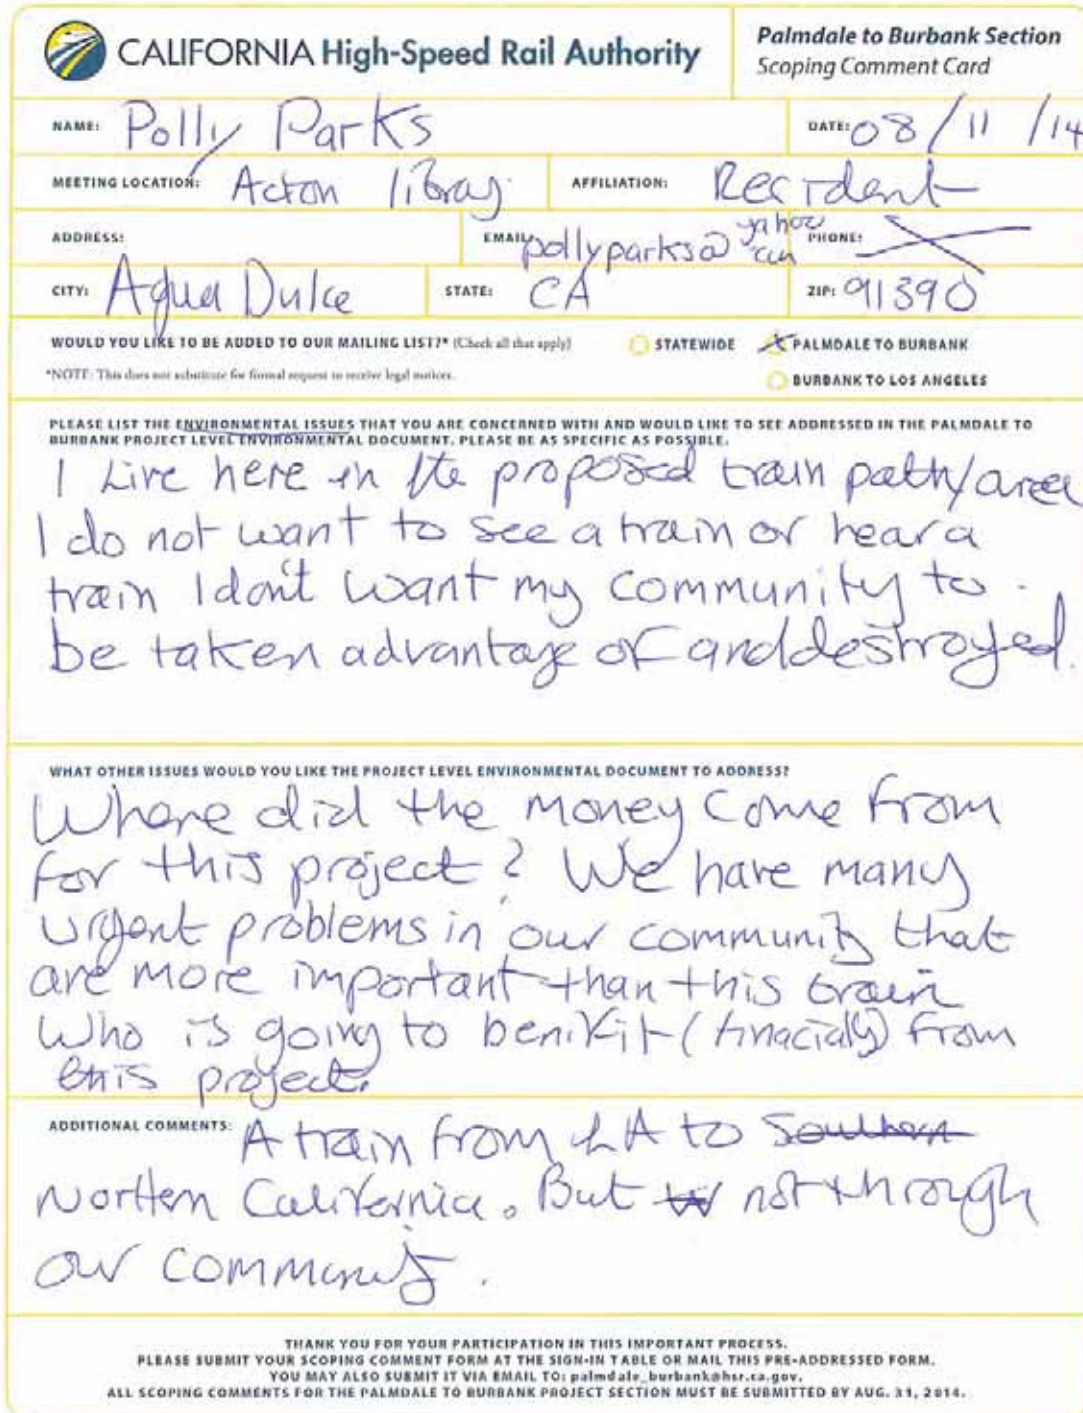 CALIFORNIA High-Speed Rail Authority
Palmdale to Burbank Section
Scoping Comment Card
NAME: Polly Parks
DATE: 08/11/14
MEETING LOCATION: Acton libray
AFFILIATION: Recident
ADDRESS:
EMAIL: pollyparks@yahoo.com
PHONE:
CITY: Aqua Dulce
STATE: CA
ZIP: 91390
WOULD YOU LIKE TO BE ADDED TO OUR MAILING LIST?* (Check all that apply)
STATEWIDE
X PALMDALE TO BURBANK
*NOTE: This does not substitute for formal request to receive legal notices.
BURBANK TO LOS ANGELES
PLEASE LIST THE ENVIRONMENTAL ISSUES THAT YOU ARE CONCERNED WITH AND WOULD LIKE TO SEE ADDRESSED IN THE PALMDALE TO
BURBANK PROJECT LEVEL ENVIRONMENTAL DOCUMENT. PLEASE BE AS SPECIFIC AS POSSIBLE.
I Live here in the proposed train path/area
I do not want to see a train or hear a
train I don't want my community to
be taken advantage of and destroyed.
WHAT OTHER ISSUES WOULD YOU LIKE THE PROJECT LEVEL ENVIRONMENTAL DOCUMENT TO ADDRESS?
Where did the money come from
for this project? We have many
urgent problems in our community that
are more important than this train
Who is going to benifit (finacially) from
this project.
ADDITIONAL COMMENTS: A train from LA to Southern
Northen California. But not through
our community.
THANK YOU FOR YOUR PARTICIPATION IN THIS IMPORTANT PROCESS.
PLEASE SUBMIT YOUR SCOPING COMMENT FORM AT THE SIGN-IN TABLE OR MAIL THIS PRE-ADDRESSED FORM.
YOU MAY ALSO SUBMIT IT VIA EMAIL TO: palmdale_burbank@hsr.ca.gov.
ALL SCOPING COMMENTS FOR THE PALMDALE TO BURBANK PROJECT SECTION MUST BE SUBMITTED BY AUG. 31, 2014.